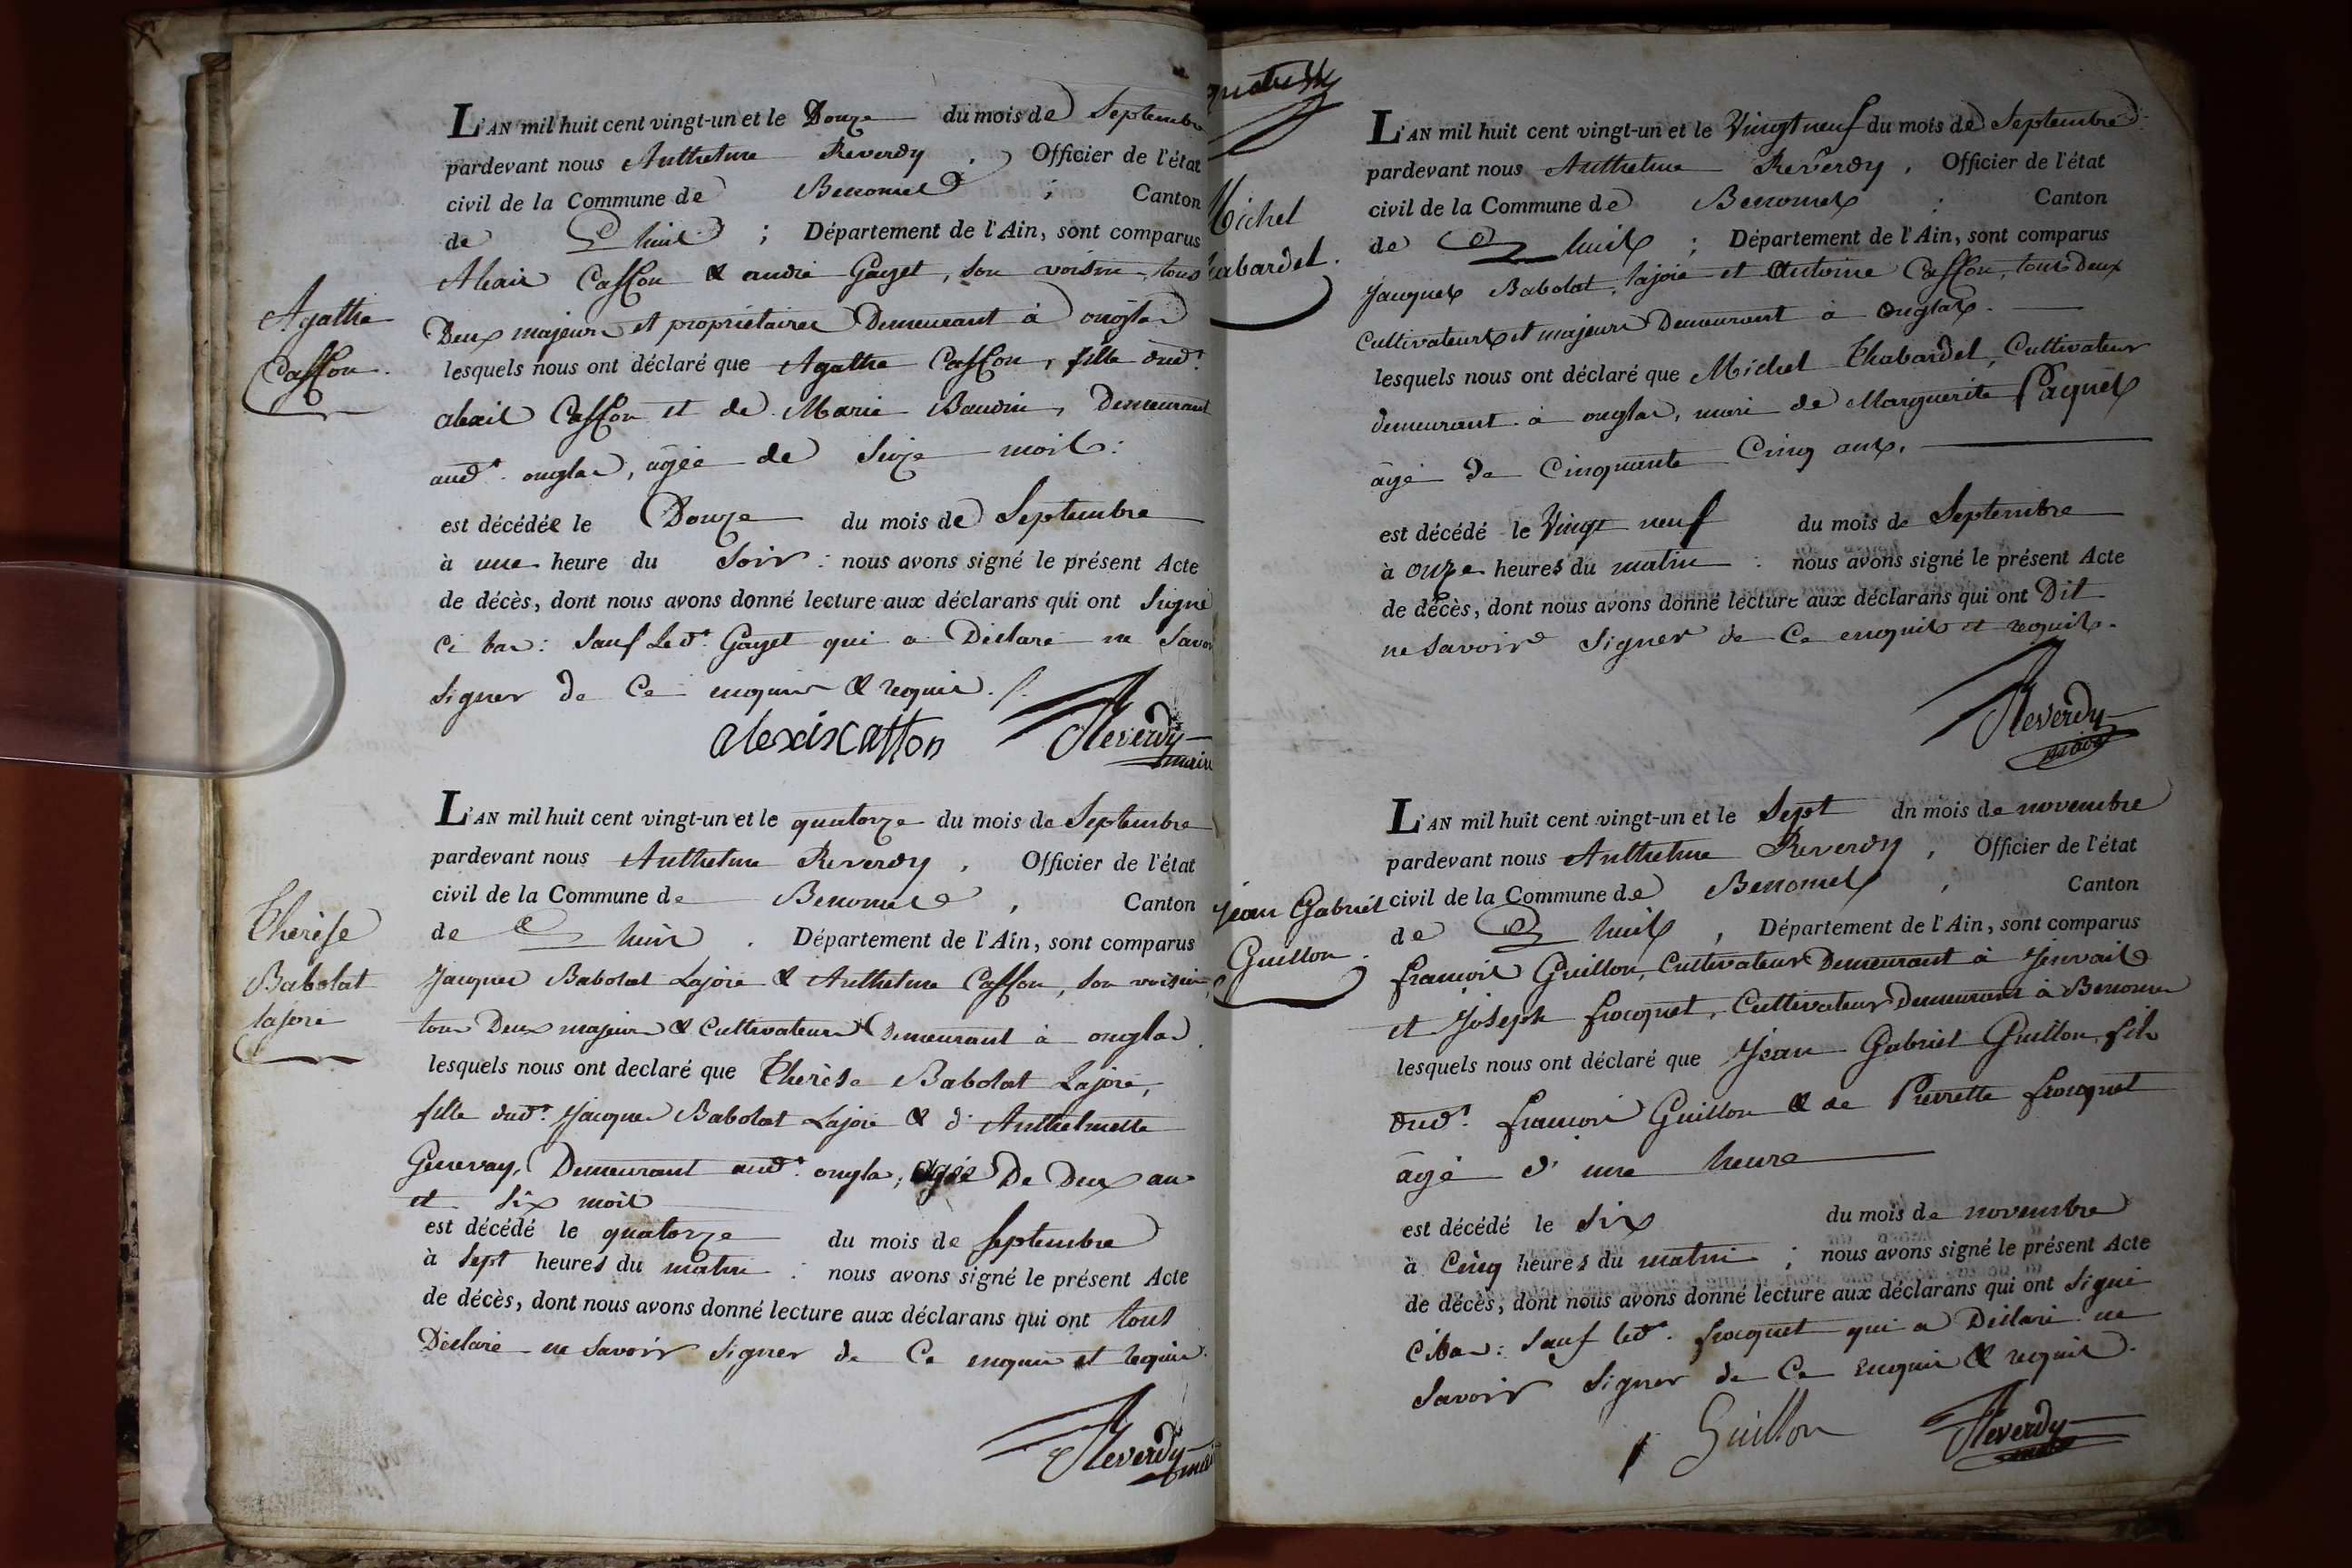 L'AN mil huit cent vingt-un et le Douze du mois de Septembre
pardevant nous Anthelme Reverdy, Officier de l'état
civil de la Commune de Benonces ; Canton
de Lhuis ; Département de l'Ain, sont comparus
Alexis Casson & andré Gayet, son voisin, tous
Deux majeurs et propriétaires Demeurant à onglas
lesquels nous ont déclaré que Agathe Casson, fille dud.t
alexis Casson et de Marie Baudin, Demeurant
aud.t onglas, âgée de Seize mois :
est décédée le Douze du mois de Septembre
à une heure du Soir : nous avons signé le présent Acte
de décès, dont nous avons donné lecture aux déclarans qui ont Signé
Ci bas : Sauf Led.t Gayet qui a Déclaré ne Savoir
Signer de Ce enquis & requis.
alexis catton Reverdy maire
Agathe
Casson.
L'AN mil huit cent vingt-un et le quatorze du mois de Septembre
pardevant nous Anthelme Reverdy, Officier de l'état
civil de la Commune de Benonces, Canton
de Lhuis. Département de l'Ain, sont comparus
Jacques Babolat Lajoie & Anthelme Casson, son voisin,
tous Deux majeurs & Cultivateurs Demeurant à onglas.
lesquels nous ont declaré que Thérèse Babolat Lajoie,
fille dud.t Jacques Babolat Lajoie & d'Anthelmette
Genevay, Demeurant aud.t onglas, agée De Deux ans
et Six mois
est décédé le quatorze du mois de Septembre
à Sept heures du matin : nous avons signé le présent Acte
de décès, dont nous avons donné lecture aux déclarans qui ont tous
Déclaré ne Savoir Signer de Ce enquis et requis.
Reverdy maire
Thérèse
Babolat
lajoie
L'AN mil huit cent vingt-un et le Vingt neuf du mois de Septembre
pardevant nous Anthelme Reverdy, Officier de l'état
civil de la Commune de Benonces ; Canton
de Lhuis ; Département de l'Ain, sont comparus
Jacques Babolat, lajoie et Antoine Casson, tous Deux
Cultivateurs et majeurs Demeurant à onglas.
lesquels nous ont déclaré que Michel Chabardel, Cultivateur
demeurant à onglas, mari de Marguerite Paquet
âgé de Cinquante Cinq ans.
est décédé le Vingt neuf du mois de Septembre
à onze heures du matin : nous avons signé le présent Acte
de décès, dont nous avons donné lecture aux déclarans qui ont Dit
ne Savoir Signer de Ce enquis et requis.
Reverdy
maire
Michel
habardel.
L'AN mil huit cent vingt-un et le Sept dn mois de novembre
pardevant nous Anthelme Reverdy, Officier de l'état
civil de la Commune de Benonces, Canton
de Lhuis, Département de l'Ain, sont comparus
françois Guillon, Cultivateur Demeurant à
et Joseph frocquet, Cultivateur Demeurant à Benonces
lesquels nous ont déclaré que Jean Gabriel Guillon, fils
dud.t françois Guillon & de Pierrette frocquet
âgé d'une heure
est décédé le Six du mois de novembre
à Cinq heures du matin ; nous avons signé le présent Acte
de décès, dont nous avons donné lecture aux déclarans qui ont Signé
Ci bas : Sauf led.t frocquet qui a Déclaré ne
Savoir Signer de Ce Enquis & requis.
Guillon Reverdy
maire
Jean Gabriel
Guillon.